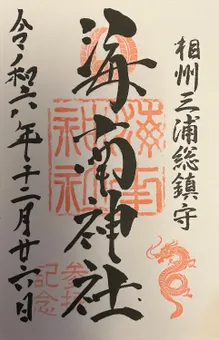 相州三浦総鎮守
海南神社
令和六年十二月廿六日
参拝
記念